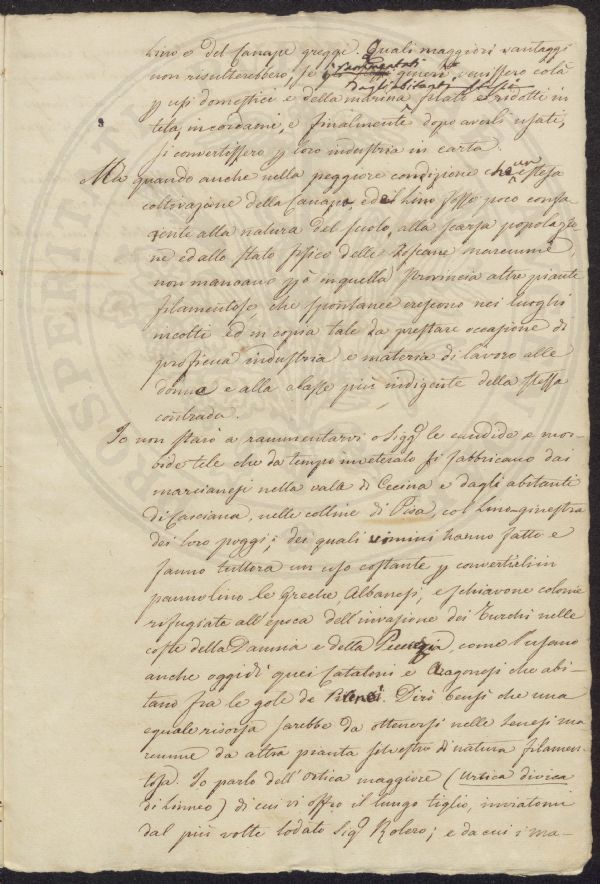 Lino e del Canape greggi. Quali maggiori vantaggi
non risulterebbero, se propagati generi venissero colà
dagli abitanti stessi
p usi domestici e della marina filati e ridotti in
tela, in cordami, e finalmente dopo averli usati,
si convertissero p loro industria in carta.
Mà quando anche nella peggiore condizione che un'estesa
coltivazione della Canapa, e del Lino fosse poco confa
cente alla natura del suolo, alla scarsa popolazio
ne ed allo stato fisico delle Toscane maremme,
non mancano pò in quella Provincia altre piante
filamentose, che spontanee crescono nei luoghi
incolti ed in copia tale da prestare occasione di
proficua industria e materia di lavoro alle
donne e alla classe più indigente della stessa
contrada.
Io non starò a rammentarvi o Sigg.i le candide e mor-
bide tele che da tempo inveterato si fabbricano dai
marcianesi nella valle di Cecina e dagli abitanti
di Casciana, nelle colline di Pisa, col Lino-ginestra
dei loro poggi; dei quali vimini hanno fatto e
fanno tuttora un uso costante p convertirli in
pannolino le Greche, Albanesi, e schiavone colonie
rifugiate all'epoca dell'invasione dei Turchi nelle
coste della Daunia e della Peucezia, come l'usano
anche oggidì quei Cataloni e Aragonesi che abi-
tano fra le gole de Pirenei. Dirò bensì che una
eguale risorsa sarebbe da ottenersi nelle Senesi ma
remme da altra pianta silvestre di natura filamen-
tosa. Io parlo dell'Ortica maggiore (Urtica divica
di Linneo) di cui vi offro il lungo tiglio, inviatomi
dal più volte lodato Sig.r Rolero; e da cui i ma-